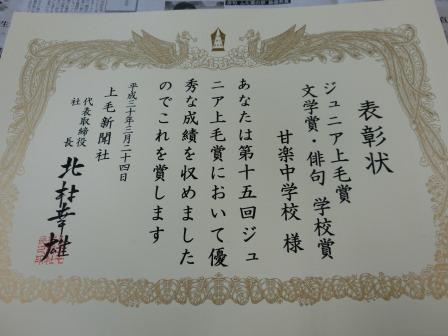 表彰状
ジュニア上毛賞
文学賞・俳句 学校賞
甘楽中学校 様
あなたは第十五回ジュ
ニア上毛賞において優
秀な成績を収めました
のでこれを賞します
平成三十年三月二十四日
上毛新聞社
代表取締役
社長
北村幸雄